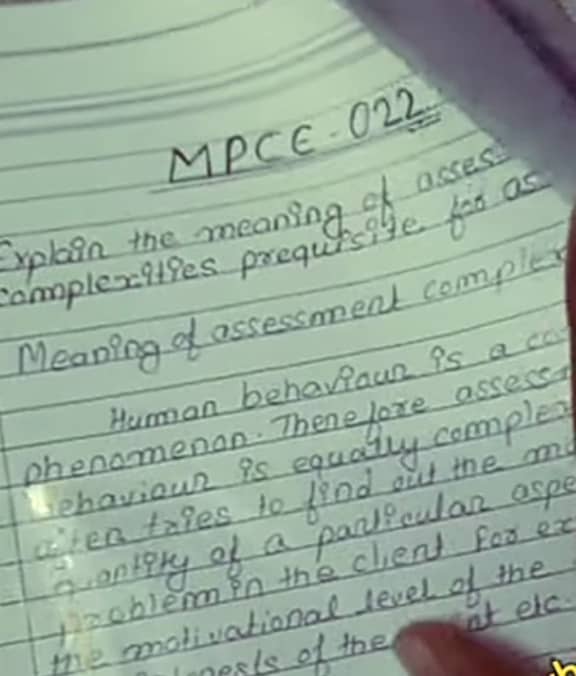 MPCE-022
Explain the meaning of asses
complexities preqursite for as
Meaning of assessment complex
Human behaviour is a co
phenomenon. Therefore assess
behaviour is equally complex
often tries to find out the
quantity of a particular aspe
problem in the client for ex
the motivational level of the
of the etc.